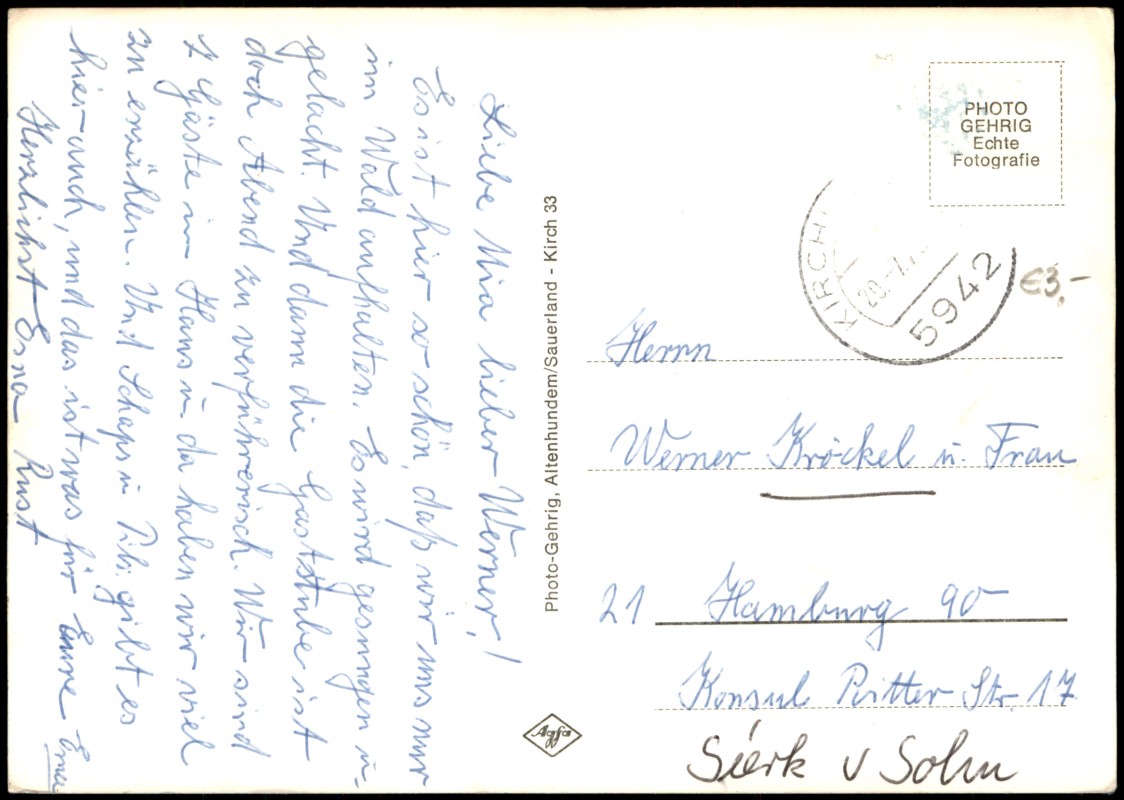 Liebe Mia lieber Werner!
Es ist hier so schön, daß wir uns nur
im Wald aufhalten. Es wird gesungen u.
gelacht. Und dann die Gaststube ist
doch Abend zu verführerisch. Wir sind
7 Gäste im Haus u. da haben wir viel
zu erzählen. Und Schaps u. Pils. gibt es
hier auch, und das ist was für Eure
Herzlichst Erna Rust
Photo-Gehrig, Altenhundem/Sauerland - Kirch 33
Agfa
PHOTO
GEHRIG
Echte
Fotografie
KIRCH
5942
€3,-
Herrn
Werner Kröckel u. Frau
21 Hamburg 90
Konsul Ritter Str. 17
Sierk v Solm